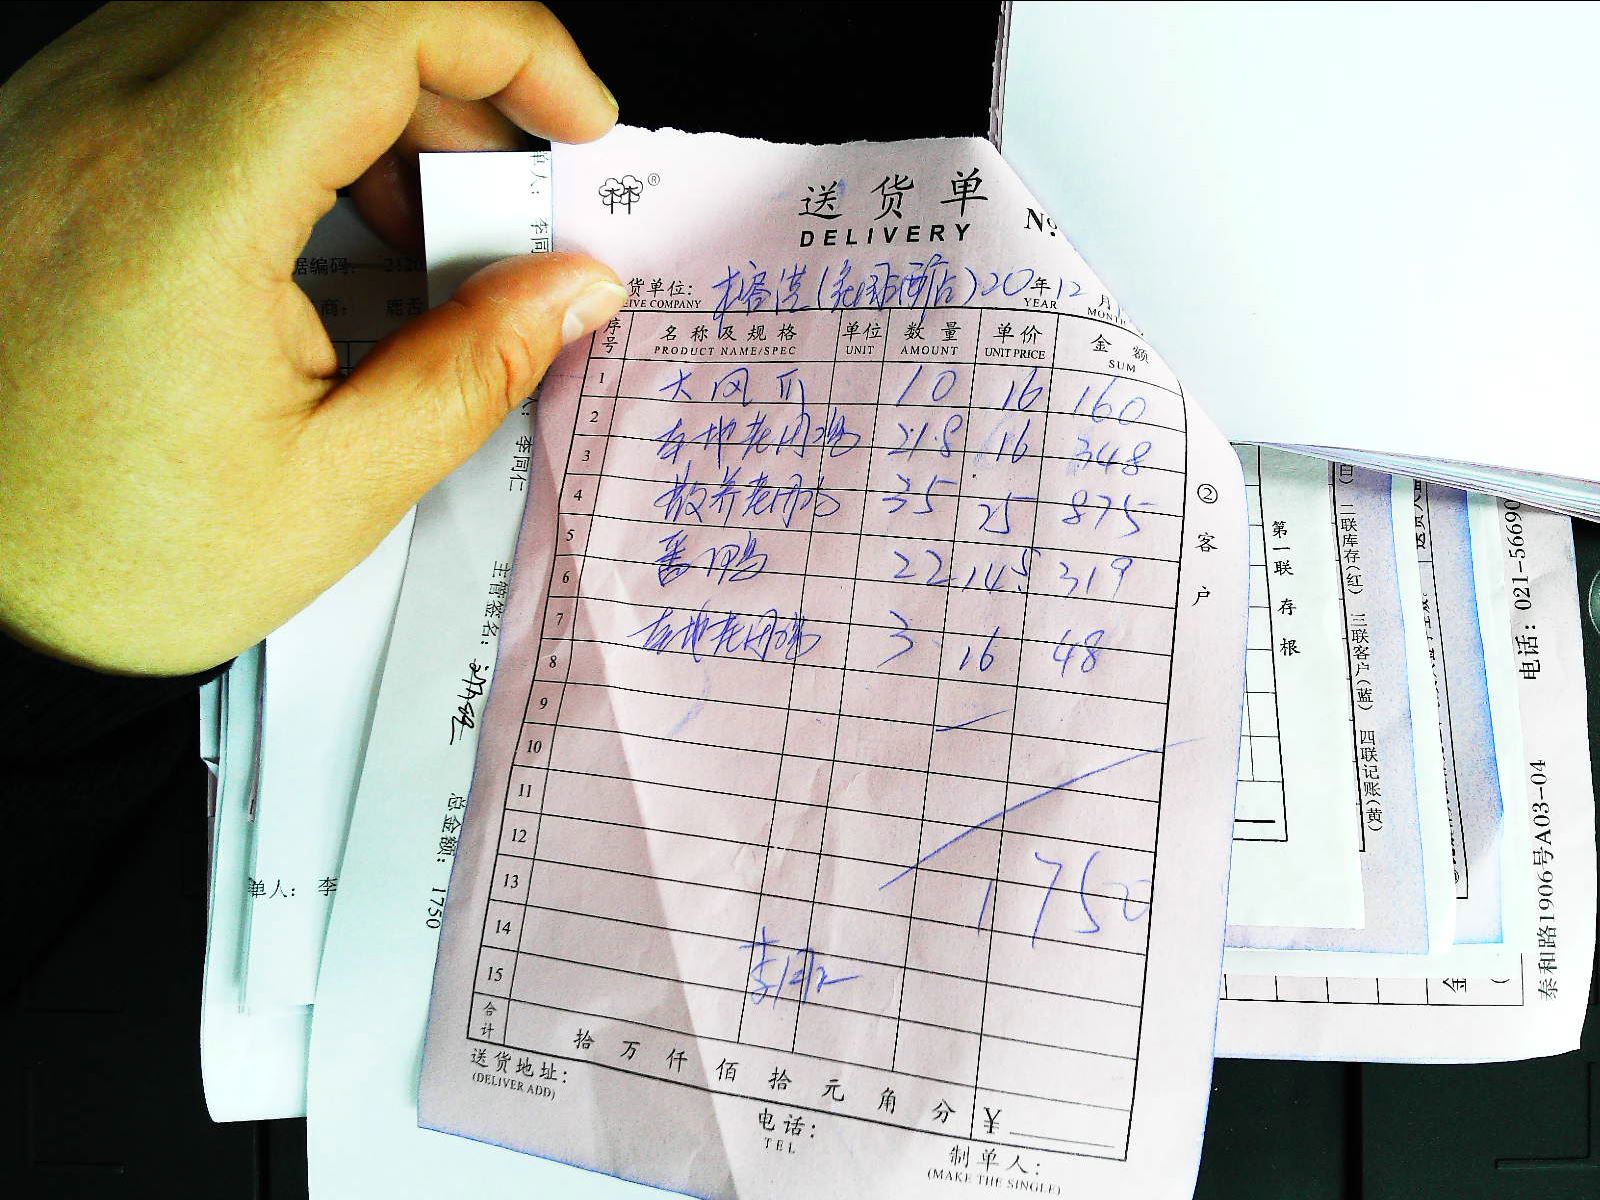 ®
送货单
DELIVERY
№
货单位: 榕港( 酒店) 20年12月
EIVE COMPANY YEAR MONTH
序号 名称及规格 单位 数量 单价 金额
PRODUCT NAME/SPEC UNIT AMOUNT UNIT PRICE SUM
1 大凤爪 10 16 160
2 本地老闭鸡 21.8 16 348
3
4 散养老闭鸡 35 25 875
5
6 番鸭 22 14.5 319
7 本地老闭鸡 3 16 48
8
9
10
11
12
13 1750
14
15 李同仁
合计 拾万仟佰拾元角分 ¥
送货地址:
(DELIVER ADD)
电话:
TEL
制单人:
(MAKE THE SINGLE)
②客户
单人: 李同
据编码: 2120
商: 鹿舌
人: 李同仁
主管签名:
总金额: 1750
单人: 李
第一联存根
白) 二联库存(红) 三联客户(蓝) 四联记账(黄)
电话: 021-5669
泰和路1906号A03-04
金